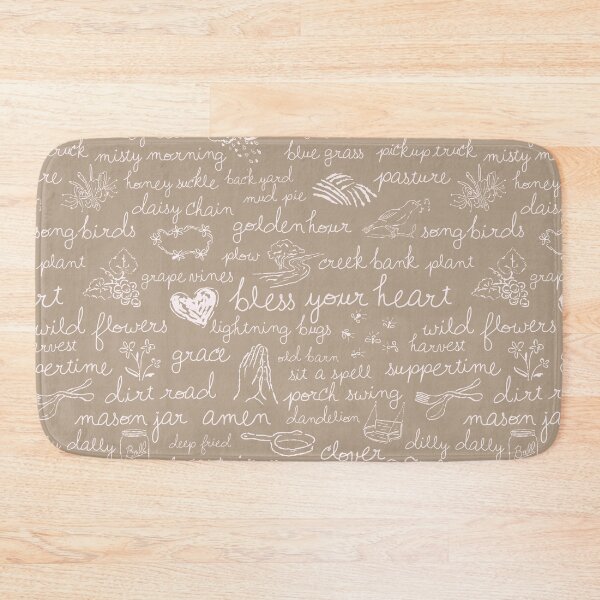 truck misty morning blue grass pickup truck misty m
honey suckle backyard pasture honey
mud pie
daisy chain
songbirds golden hour songbirds
plant plow creek bank plant
grape vines grape
rt bless your heart
wild flowers lightning bugs wild flowers
harvest harvest
suppertime grace old barn suppertime
sit a spell
dirt road porch swing dirt ro
mason jar amen dandelion mason jar
dally Ball deep fried dilly dally Ball
clover